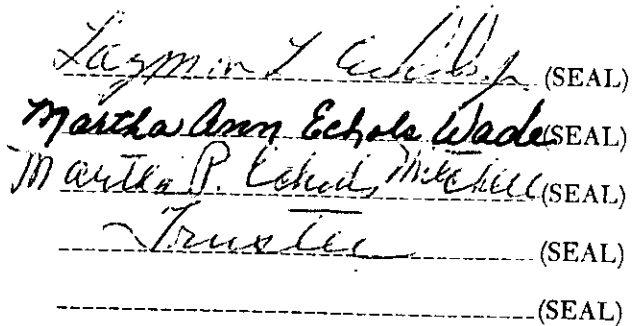 Laymon L Echols Jr (SEAL)
Martha Ann Echols Wade (SEAL)
Martha P. Echols Mitchell (SEAL)
Trustee (SEAL)
(SEAL)